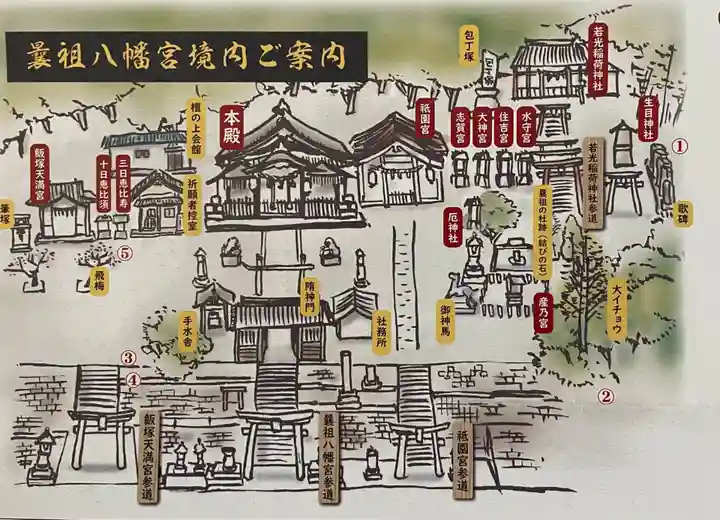 曩祖八幡宮境内ご案内
包丁塚
若光稲荷神社
生目神社
①
檀の上会館
本殿
祇園宮
志賀宮
大神宮
住吉宮
水守宮
若光稲荷神社参道
飯塚天満宮
十日恵比須
三日恵比寿
祈願者控室
厄神社
曩祖の杜跡(結びの石)
歌碑
筆塚
⑤
飛梅
隋神門
手水舎
社務所
御神馬
産乃宮
大イチョウ
③
④
②
飯塚天満宮参道
曩祖八幡宮参道
祇園宮参道